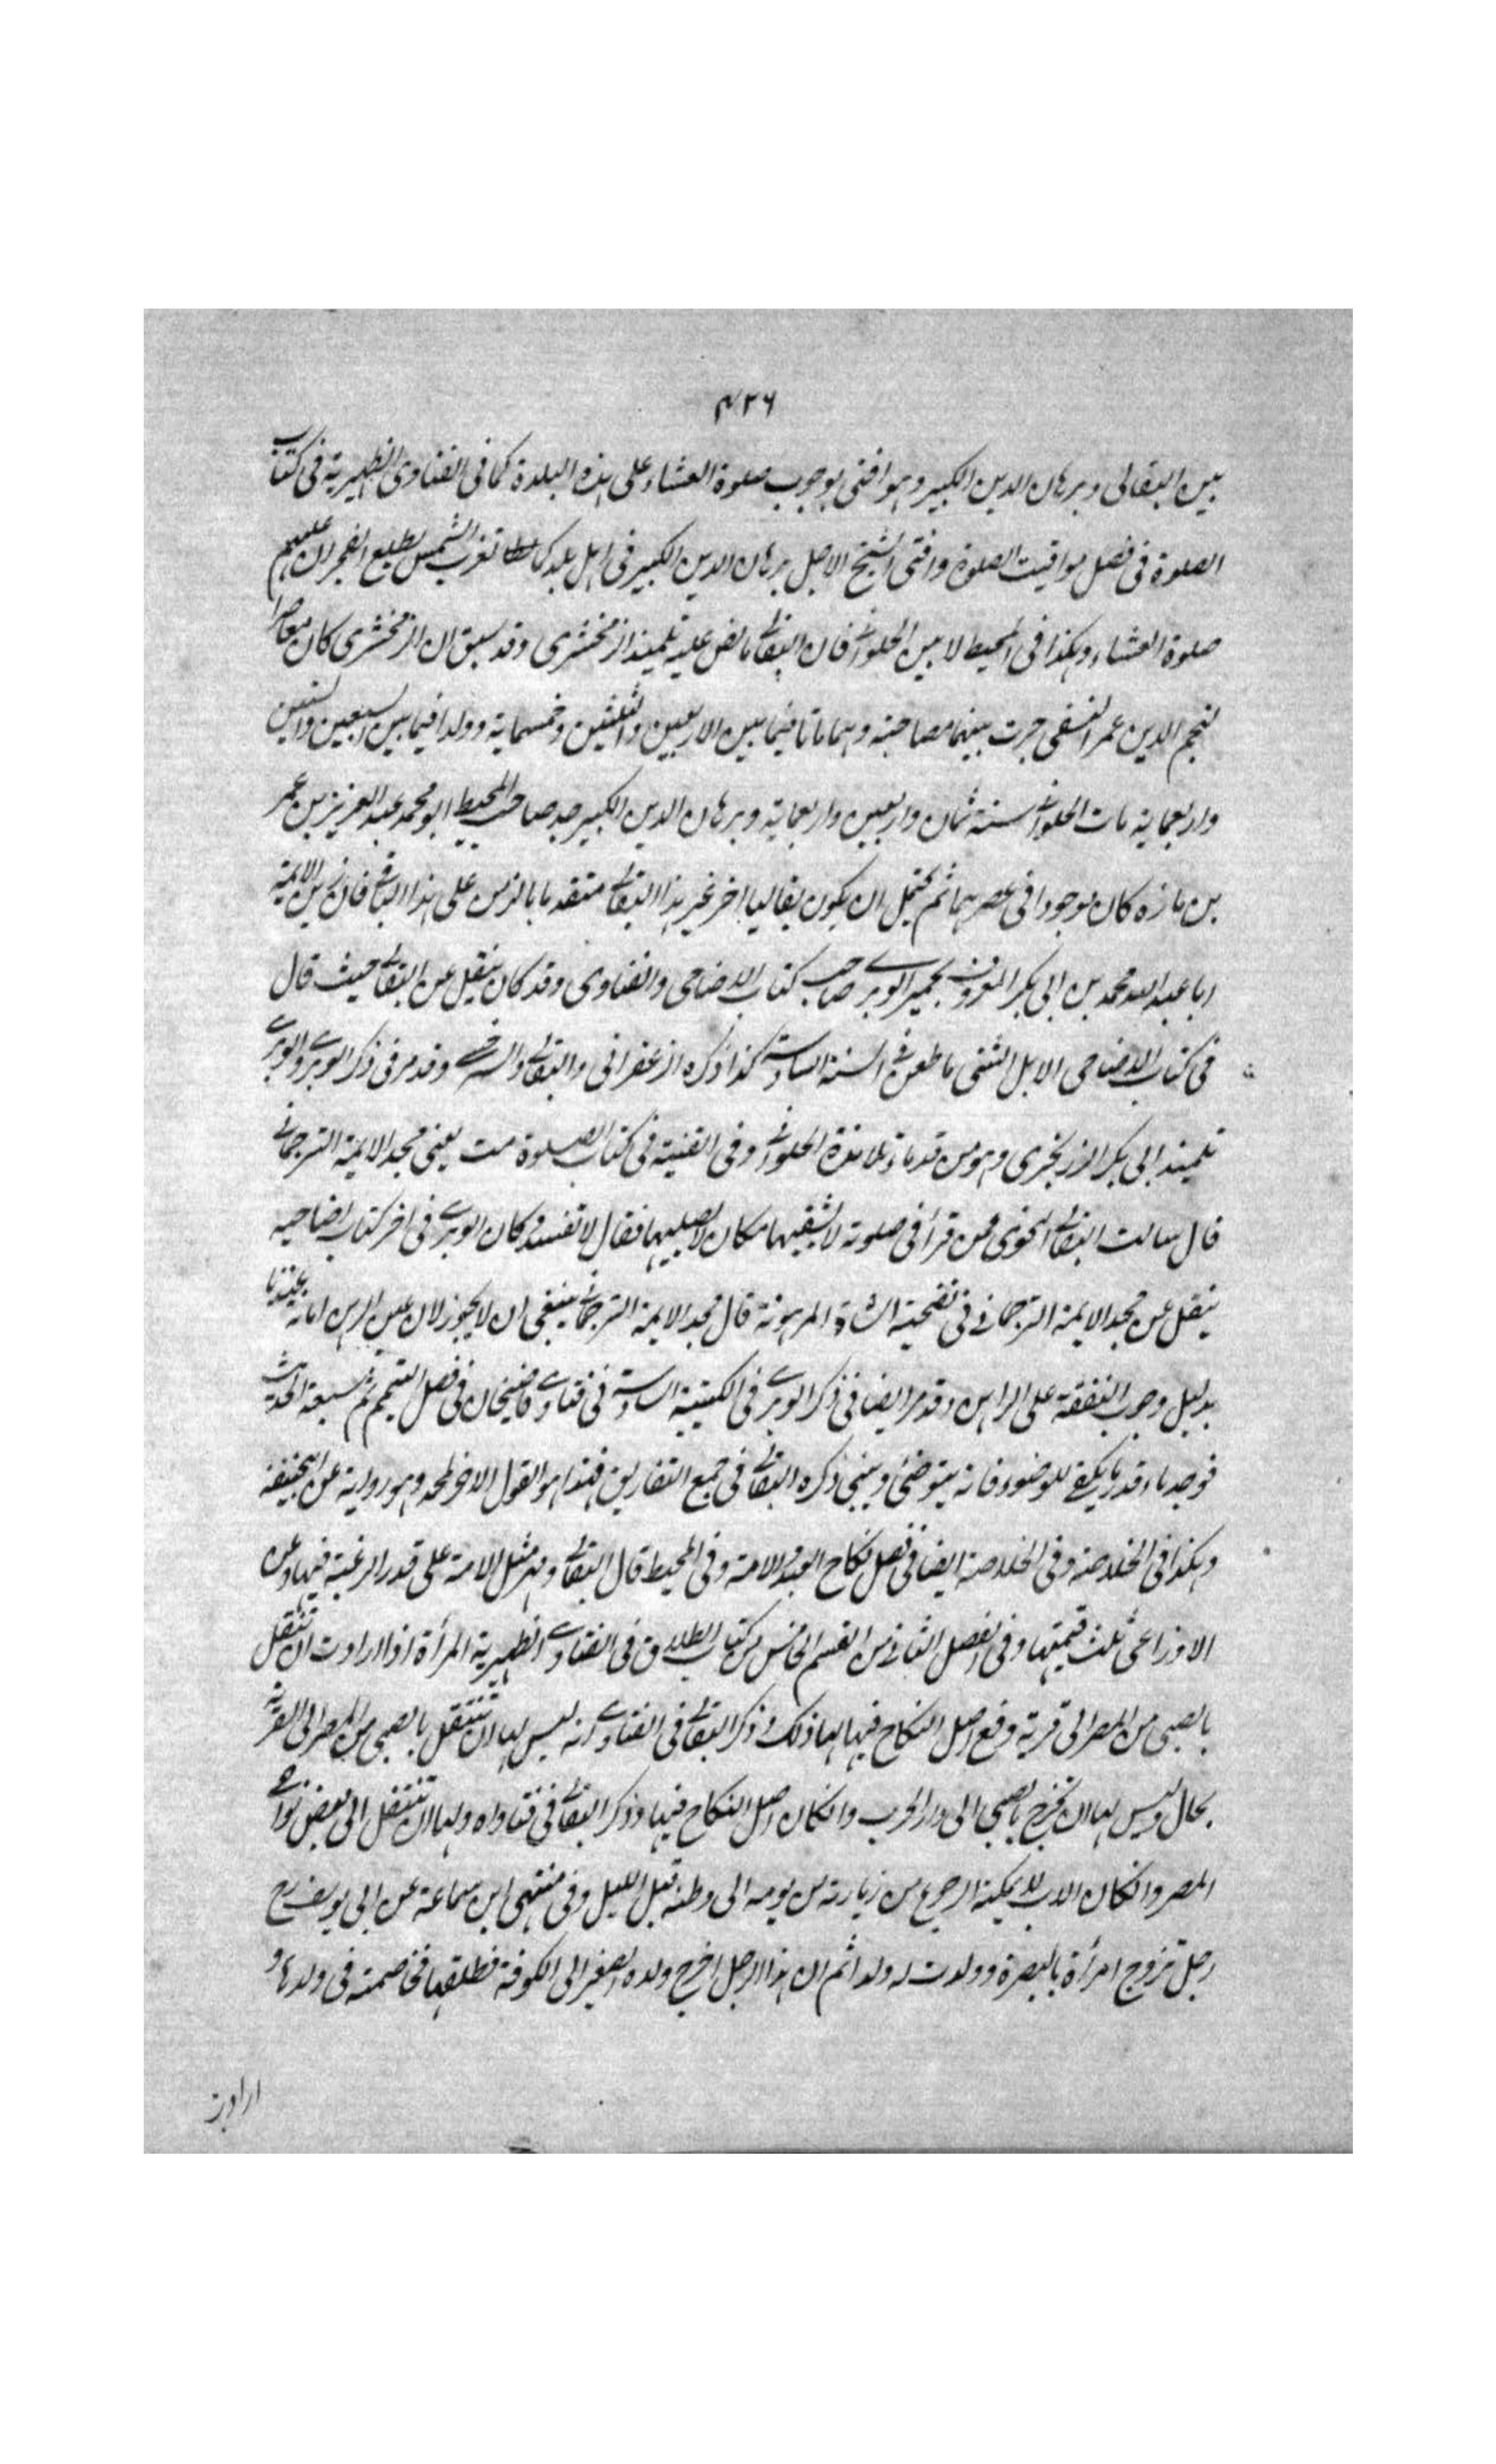 ۴۲۶
بين البقالى وبرهان الدين الكبير وهو افتى بوجوب صلوة العشاء على هذه البلدة كما فى الفتاوى الظهيرية فى كتاب
الصلوة فى فصل مواقيت الصلوة وافتى الشيخ الاجل برهان الدين الكبير فى اهل بلد كما تغرب الشمس يطلع الفجر ان عليهم
صلوة العشاء وهكذا فى المحيط لا بين الحلوانى فان البقالى ما نص عليه تلميذ الزمخشرى وقد سبق ان الزمخشرى كان معاصرا
لنجم الدين عمر النسفى جرت بينهما مصاحبة وهما ماتا فيما بين الاربعين والثلثين وخمسماية وولدا فيما بين السبعين والستين
واربعماية مات الحلوانى سنة ثمان واربعين واربعماية وبرهان الدين الكبير جد صاحب المحيط ابو محمد عبد العزيز بن عمر
بن مازه كان موجودا فى عصرهما ثم يحتمل ان يكون بقاليا اخر غير هذا البقالى متقدما بالزمن على هذا البقالى فان زين الايمة
ابا عبد الله محمد بن ابى بكر المعروف بخمير الوبرى صاحب كتاب الاضاحى والفتاوى وقد كان ينقل عن البقالى حيث قال
فى كتاب الاضاحى الابل الثنى ما طعن فى السنة السادسة كذا ذكره الزعفرانى والبقالى والسرخسى وقد مر فى ذكر الوبرى والوبرى
تلميذ ابى بكر الزرنجرى وهو من قدماء تلامذة الحلوانى وفى القنية فى كتاب الصلوة مت يعنى مجد الايمة الترجمانى
قال سالت البقالى الخوى عمن قرأ فى صلوته لا يشقيها مكان لا يصليها فقال لا تفسد وكان الوبرى فى اخر كتاب اضاحيه
ينقل عن مجد الايمة الترجمانى فى تضحية الشاة المرهونة قال مجد الايمة الترجمانى ينبغى ان لا يجوز لان عين الرهن امانة عندنا
بدليل وجوب النفقة على الراهن وقد مر ايضا فى ذكر الوبرى فى الكتيبة السادسة فى فتاوى قاضيخان فى فصل التيمم ثم سبعة الحدث
فوجد ماء قدر ما يكفى للوضوء فانه يتوضئ ويبنى ذكره البقالى فى جمع التفاريق فهذا هو القول الاخر لمحمد وهو رواية عن ابيحنيفة
وهكذا فى الخلاصة وفى الخلاصة ايضا فى فصل نكاح العبد والامة وفى المحيط قال البقالى ومهر مثل الامة على قدر الرغبة فيها وعن
الاوزاعى ثلث قيمتها وفى الفصل الثانى من القسم الخامس من كتاب الطلاق فى الفتاوى الظهيرية المرأة اذا ارادت ان تنتقل
بالصبى من المصر الى قرية وقع اصل النكاح فيها لها ذلك وذكر البقالى فى الفتاوى انه ليس لها ان تنتقل بالصبى من المصر الى القرية
بحال وليس لها ان تخرج بالصبى الى دار الحرب وان كان اصل النكاح فيها وذكر البقالى فى فتاواه ولها ان تنتقل الى بعض نواحى
المصر وان كان الاب لا يمكنه الرجوع من زيارته من يومه الى وطنه قبل الليل وفى منتهى ابن سماعة عن ابى يوسف رح
رجل تزوج امرأة بالبصرة وولدت له ولدا ثم ان هذا الرجل اخرج ولده الصغير الى الكوفة فطلقها فخاصمته فى ولدها و
ارادت